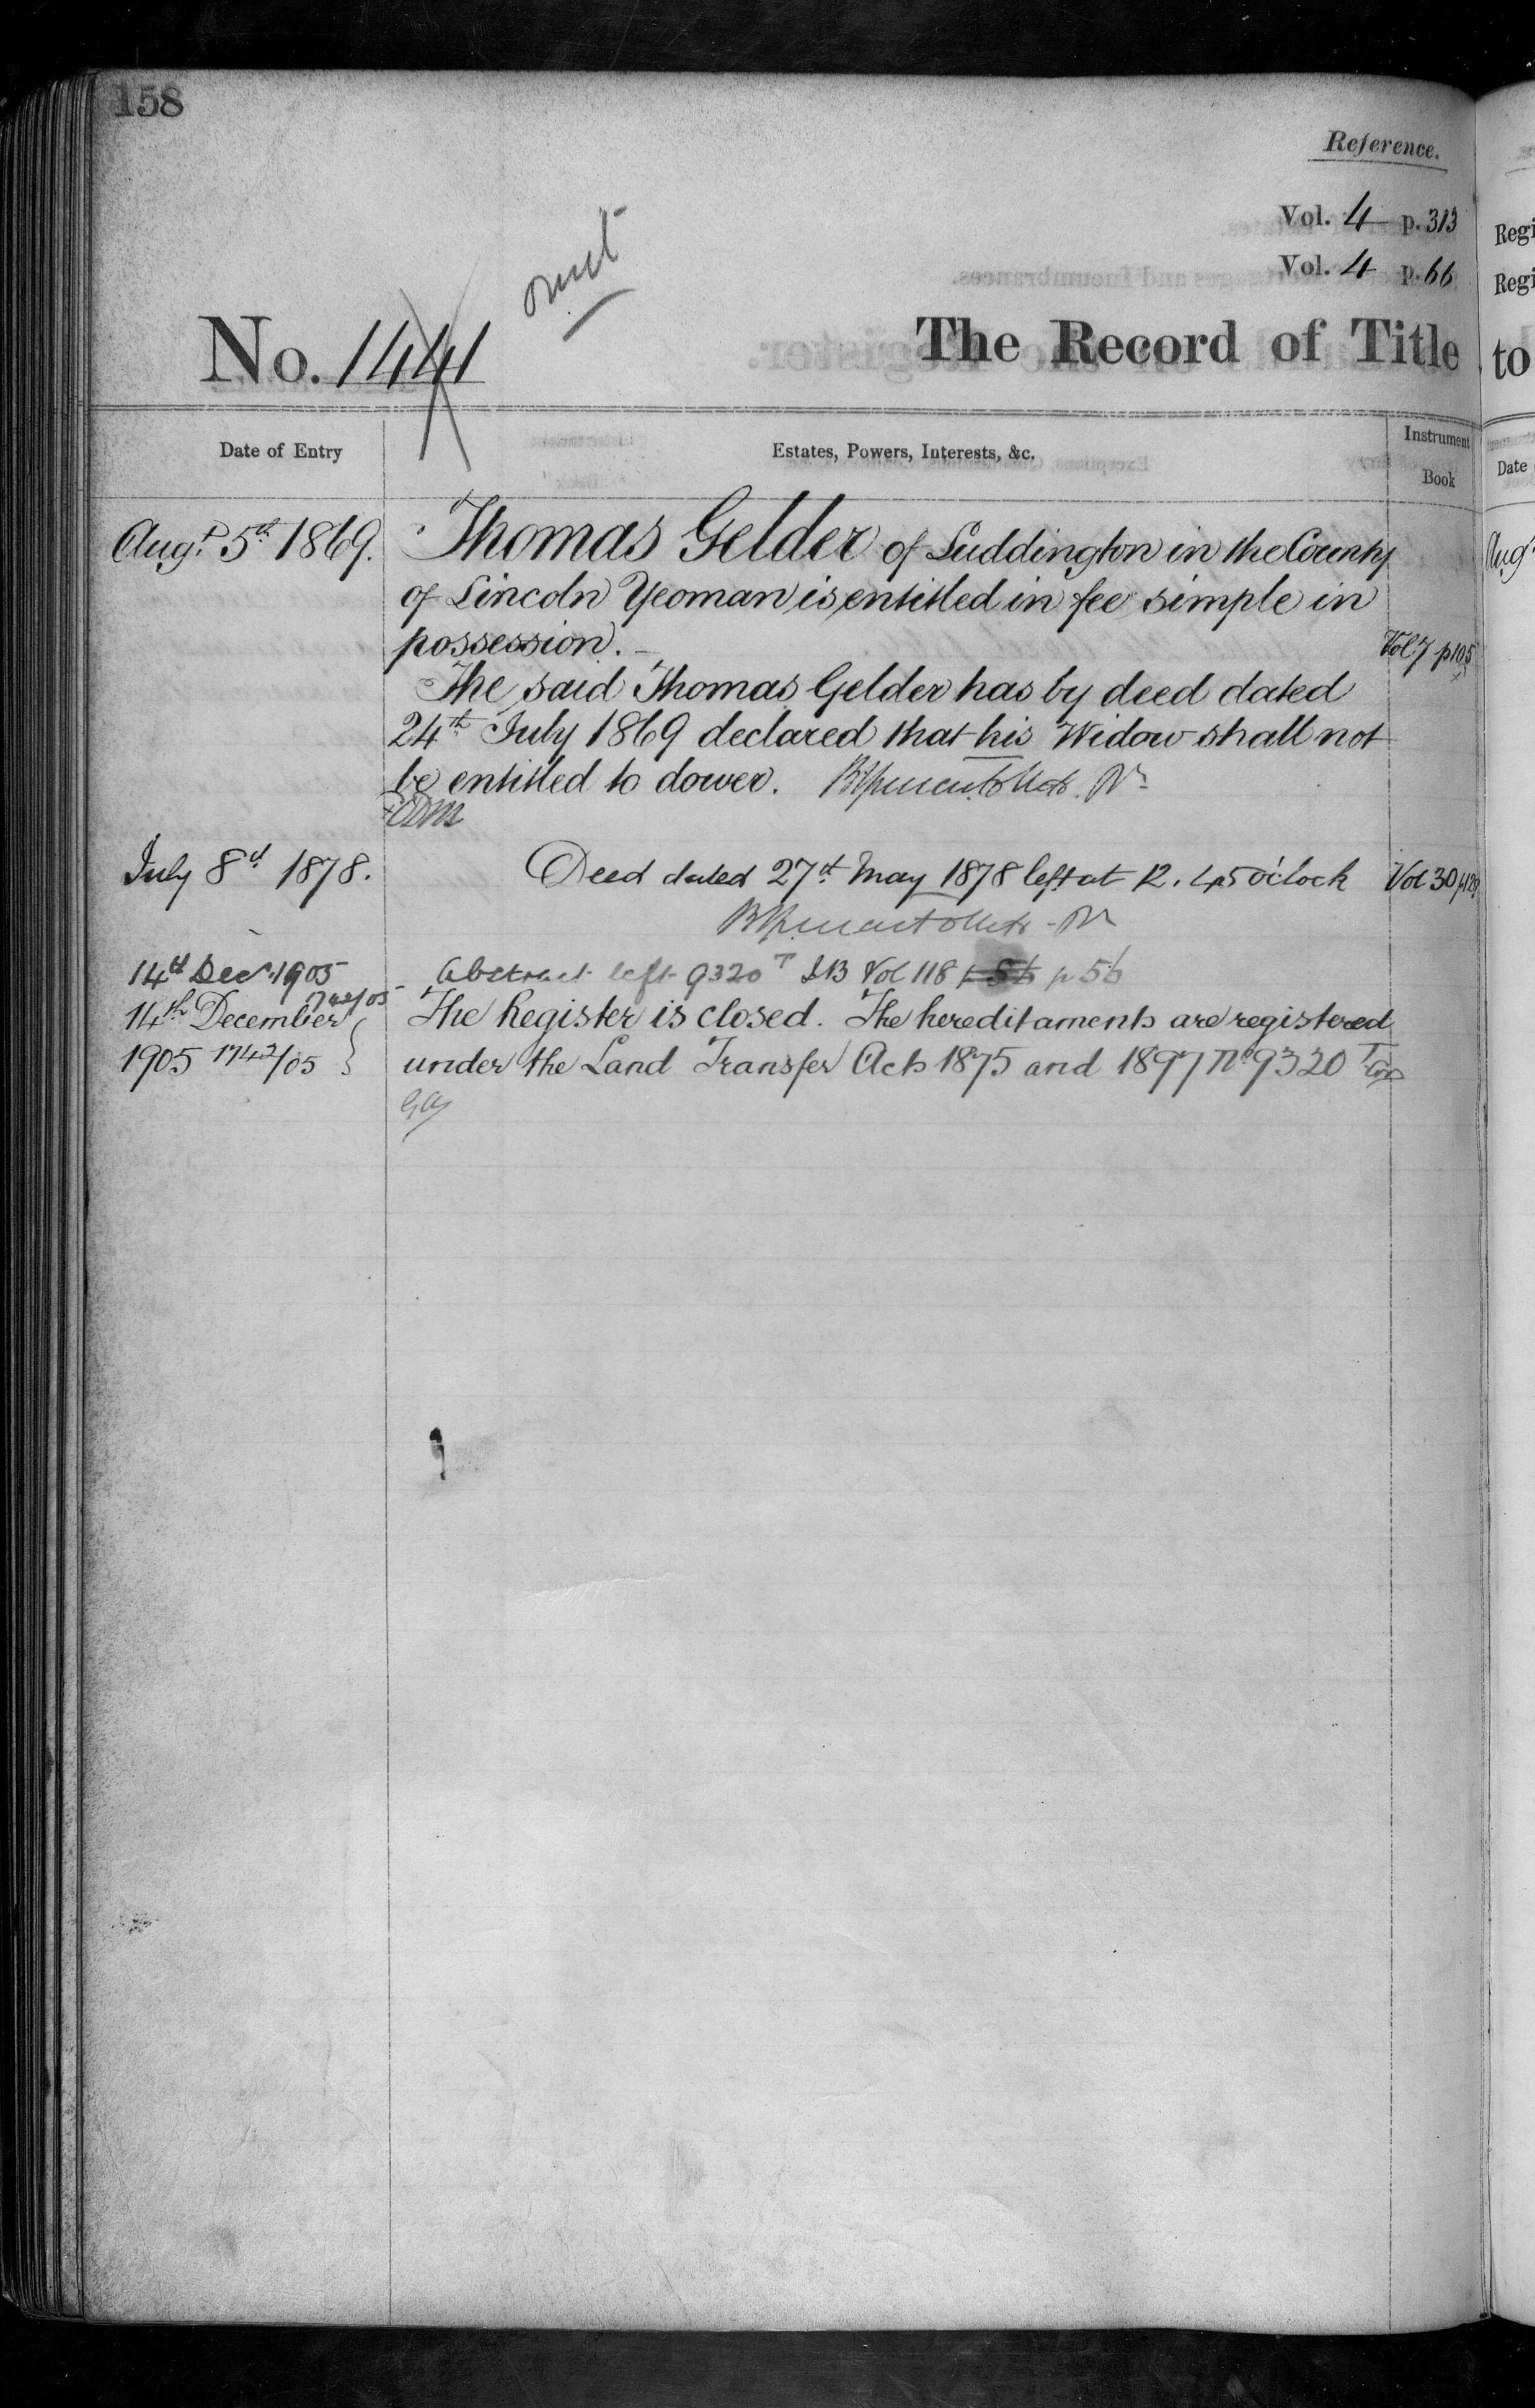 158
Reference.
Vol. 4 p. 313
Vol. 4 p. 66
omit
No. 1441
The Record of Title
Date of Entry
Estates, Powers, Interests, &c.
Instrument
Book
Augt 5th 1869.
Thomas Gelder of Luddington in the County
of Lincoln Yeoman is entitled in fee simple in
possession.
Vol. 7 p 105
The said Thomas Gelder has by deed dated
24th July 1869 declared that his Widow shall not
be entitled to dower.
July 8th 1878.
Deed dated 27th May 1878 left at 12.45 o'clock
Vol 30 p 129
14th Decr. 1905
Abstract left 9320 T I.B Vol 118 p 56
1742/05
14th December
The Register is closed. The hereditaments are registered
1905 1742/05
under the Land Transfer Acts 1875 and 1897 No 9320
Regi
Regi
to
Date
Augt